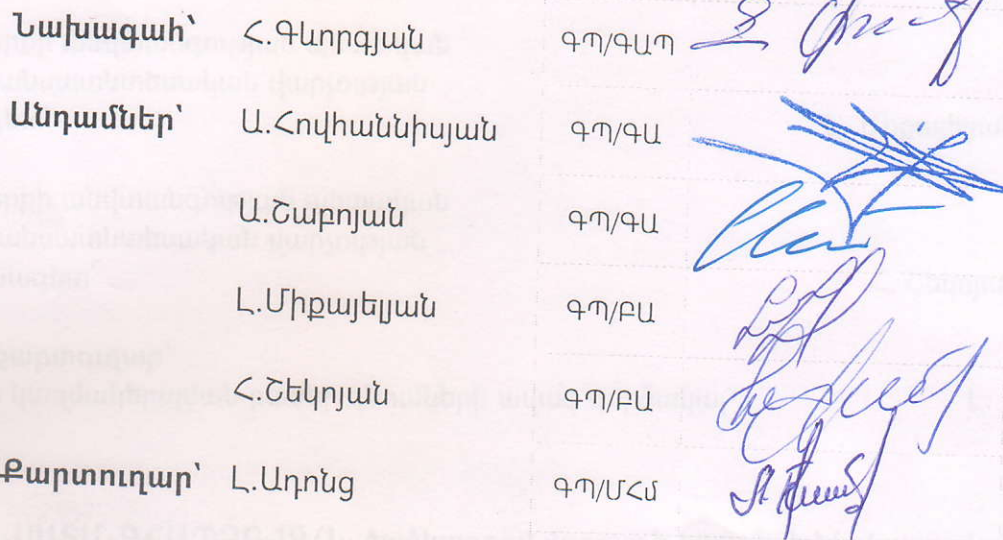 Նախագահ՝ Հ.Գևորգյան ԳՊ/ԳԱՊ
Անդամներ՝ Ա.Հովհաննիսյան ԳՊ/ԳԱ
Ա.Շաբոյան ԳՊ/ԳԱ
Լ.Միքայելյան ԳՊ/ԲԱ
Հ.Շեկոյան ԳՊ/ԲԱ
Քարտուղար՝ Լ.Ադոնց ԳՊ/ՄՀմ